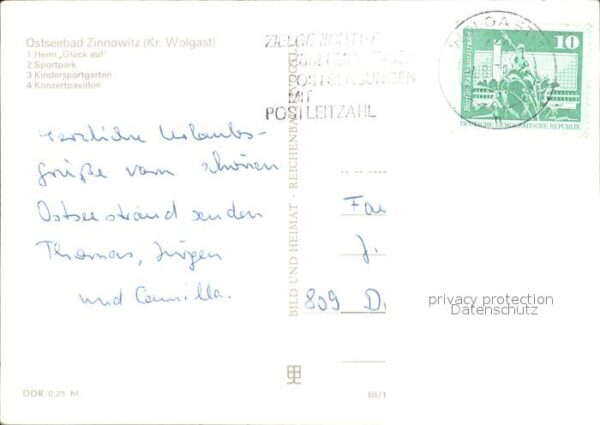 Ostseebad Zinnowitz (Kr. Wolgast)
1 Heim „Glück auf“
2 Sportpark
3 Kindersportgarten
4 Konzertpavillon
Herzliche Urlaubs-
grüße vom schönen
Ostseestrand senden
Thomas, Jürgen
und Camilla.
DDR 0,25 M.
BILD UND HEIMAT · REICHENBACH
III/1
ZIELGERICHTET
POSTSENDUNGEN
MIT
POSTLEITZAHL
WOLGAST
10
Berlin, Rathausstraße
DEUTSCHE DEMOKRATISCHE REPUBLIK
Fa
J.
809 D.
privacy protection
Datenschutz